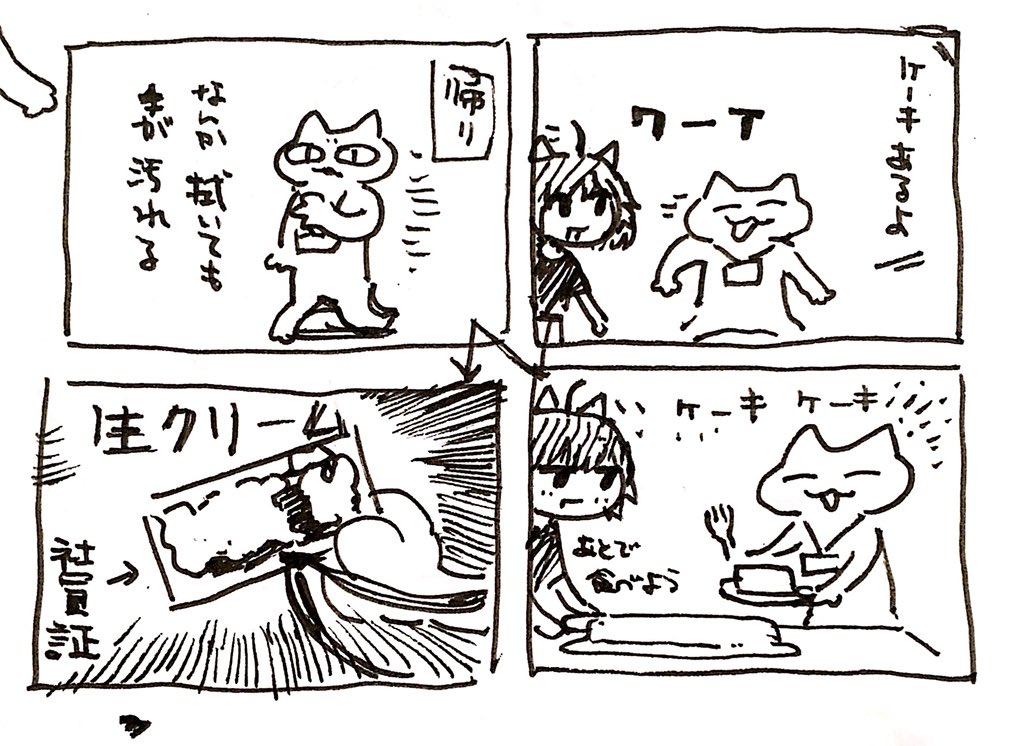 ケーキあるよ
ワーイ
ケーキ ケーキ
あとで
食べよう
帰り
なんか拭いても
手が汚れる
生クリーム
社員証→